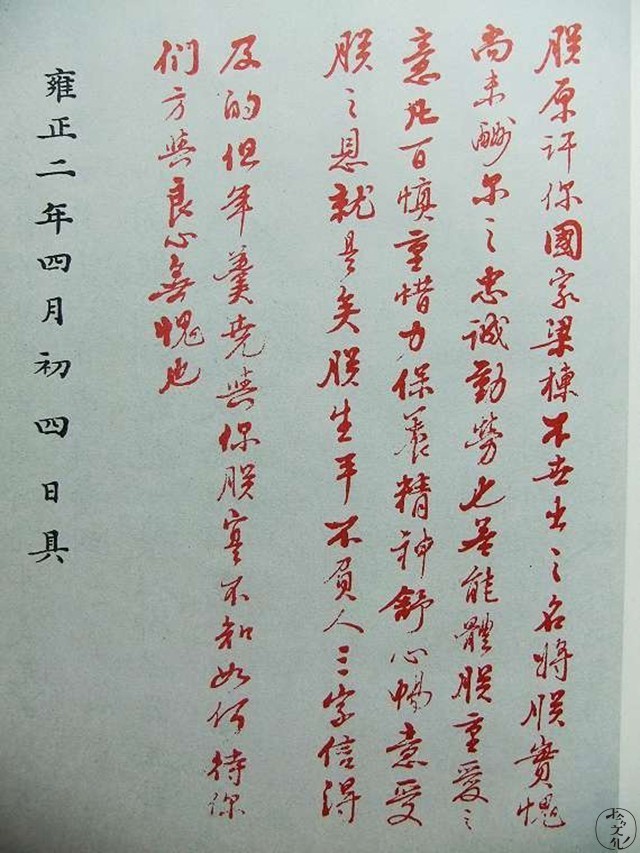 朕原许你國家梁棟不世出之名將朕實愧
尚未酬尔之忠誠勤勞也若能體朕重愛之
意凡百慎重惜力保養精神舒心暢意受
朕之恩就是矣朕生平不負人三字信得
及的但年羹尭與你朕實不知如何待你
们方與良心無愧也
雍正二年四月初四日具
文化